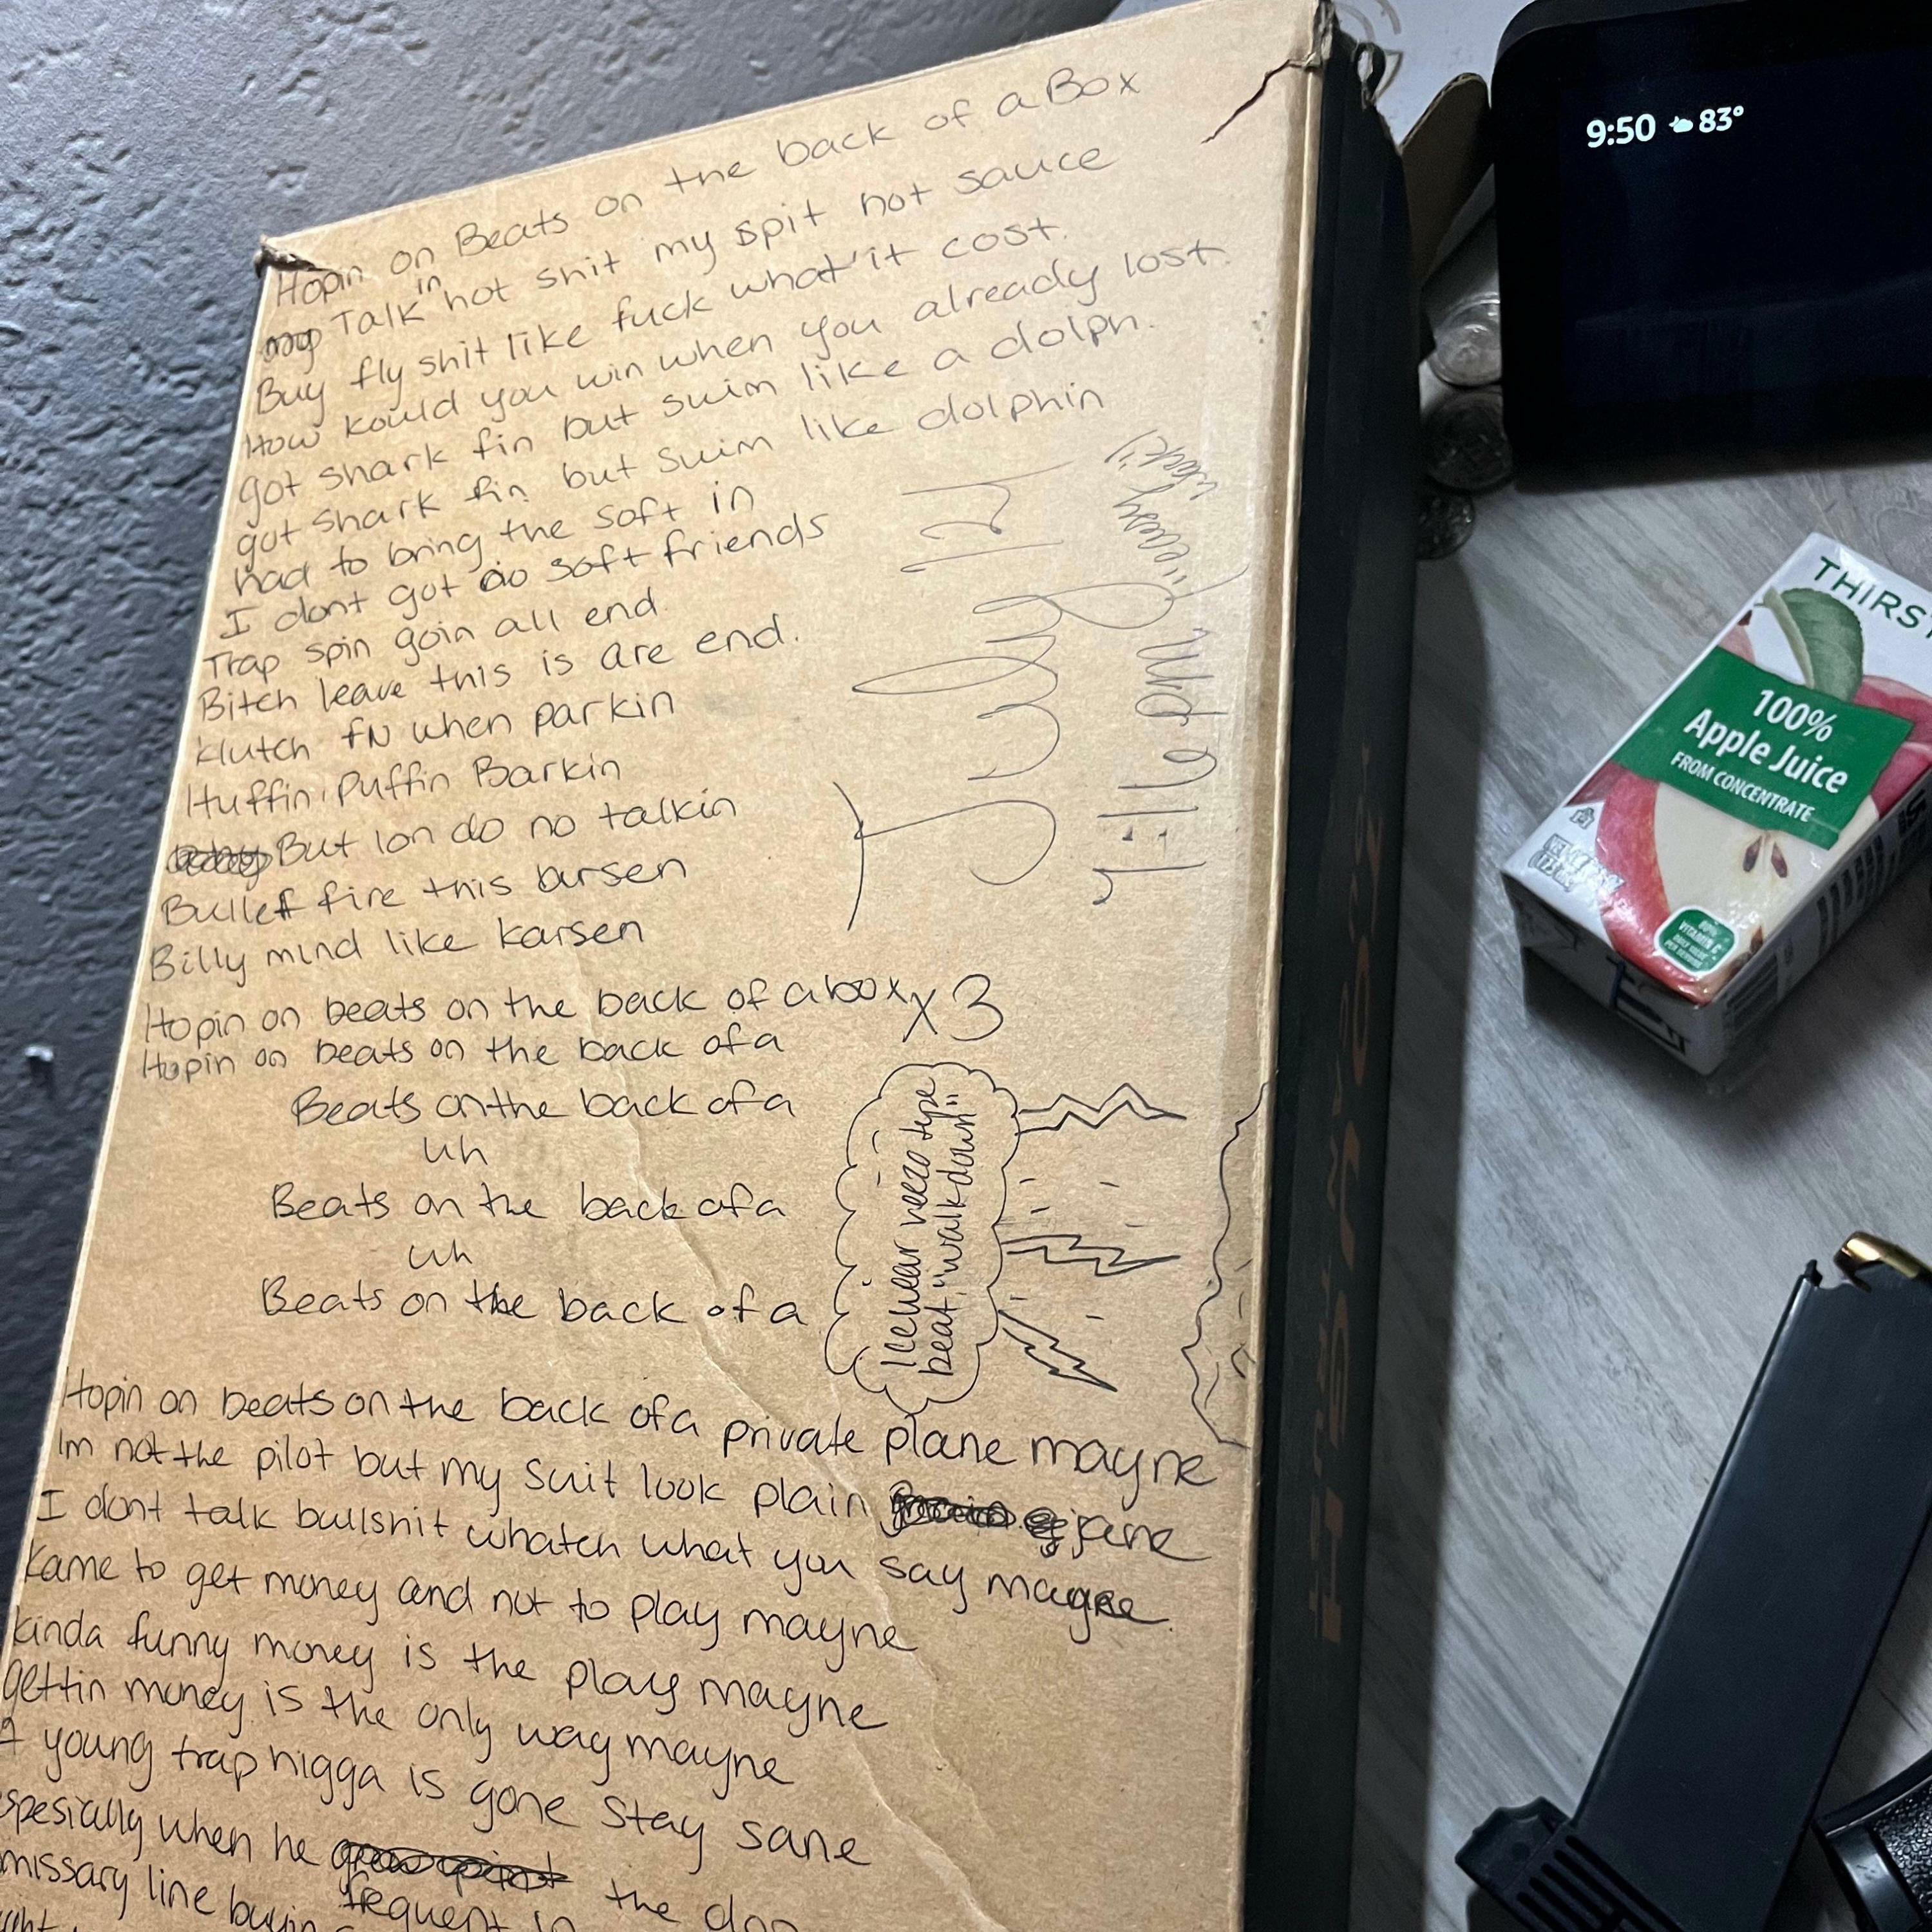 Hopin on Beats on the back of a Box
Talk in hot shit my spit hot sauce
Buy fly shit like fuck what it cost.
How kould you win when you already lost.
got shark fin but swim like a dolph.
got shark fin but swim like dolphin
had to bring the soft in
I dont got no soft friends
Trap spin goin all end.
Bitch leave this is are end.
klutch fN when parkin
Huffin Puffin Barkin
But Ion do no talkin
Bullet fire this arsen
Billy mind like karsen
Hopin on beats on the back of a box x 3
Hopin on beats on the back of a
Beats on the back of a
uh
Beats on the back of a
uh
Beats on the back of a
Hopin on beats on the back of a private plane mayne
Im not the pilot but my suit look plain jane
I dont talk bullshit whatch what you say mayne.
Kame to get money and not to play mayne
kinda funny money is the play mayne
gettin money is the only way mayne
A young trap nigga is gone stay sane
espesially when he
frequent in the
missary line buyin
July 12
4:16 pm
Icewear vezzo type
beat "walk down"
9:50 83°
THIRS
100%
Apple Juice
FROM CONCENTRATE
VITAMIN C